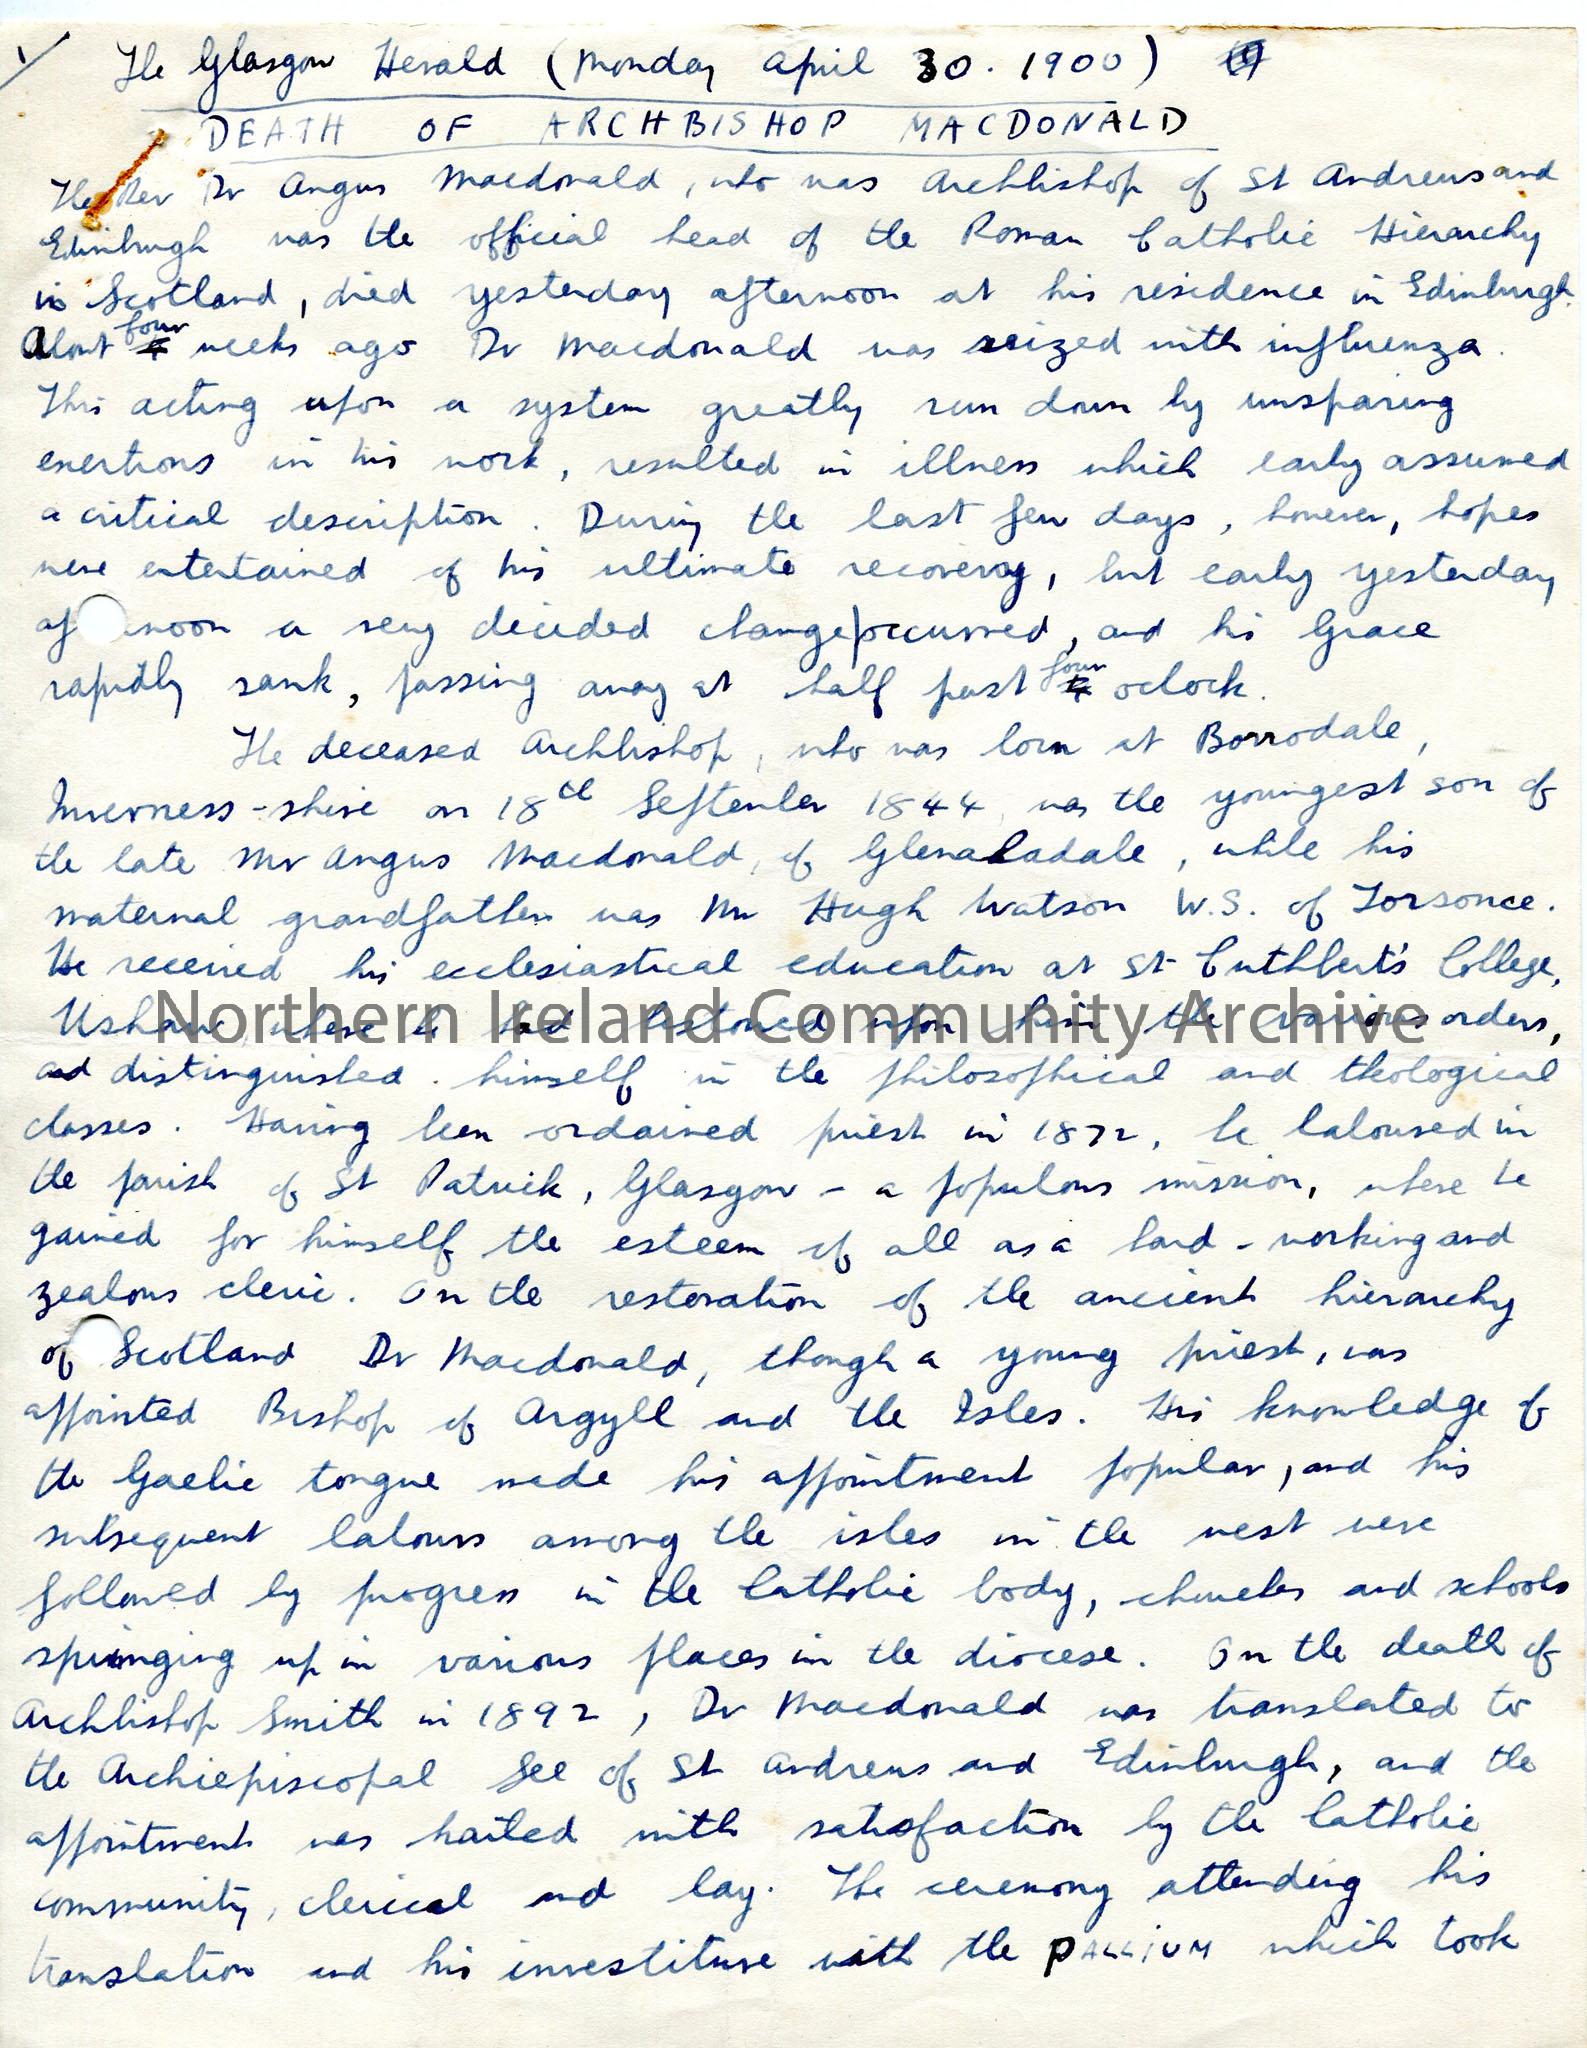 1/ The Glasgow Herald (Monday April 30. 1900)
DEATH OF ARCHBISHOP MACDONALD
The Rev Dr Angus Macdonald, who was Archbishop of St Andrews and
Edinburgh was the official head of the Roman Catholic Hierarchy
in Scotland, died yesterday afternoon at his residence in Edinburgh.
About four weeks ago Dr Macdonald was seized with influenza.
This acting upon a system greatly run down by unsparing
exertions in his work, resulted in illness which early assumed
a critical description. During the last few days, however, hopes
were entertained of his ultimate recovery, but early yesterday
af noon a very decided change occurred, and his Grace
rapidly sank, passing away at half past four oclock.
The deceased Archbishop, who was born at Borrodale,
Inverness-shire on 18th September 1844, was the youngest son of
the late Mr Angus Macdonald, of Glenaladale, while his
maternal grandfather was Mr Hugh Watson W.S. of Torsonce.
He received his ecclesiastical education at St Cuthbert's College,
Ushaw, where he had bestowed upon him the various orders,
and distinguished. himself in the philosophical and theological
classes. Having been ordained priest in 1872, he laboured in
the parish of St Patrick, Glasgow - a populous mission, where he
gained for himself the esteem of all as a hard-working and
zealous cleric. On the restoration of the ancient hierarchy
of Scotland Dr Macdonald, though a young priest, was
appointed Bishop of Argyll and the Isles. His knowledge of
the Gaelic tongue made his appointment popular, and his
subsequent labours among the isles in the west were
followed by progress in the Catholic body, churches and schools
springing up in various places in the diocese. On the death of
Archbishop Smith in 1892, Dr Macdonald was translated to
the Archiepiscopal See of St Andrews and Edinburgh, and the
appointment was hailed with satisfaction by the Catholic
community, clerical and lay. The ceremony attending his
translation and his investiture with the PALLIUM which took
Northern Ireland Community Archive